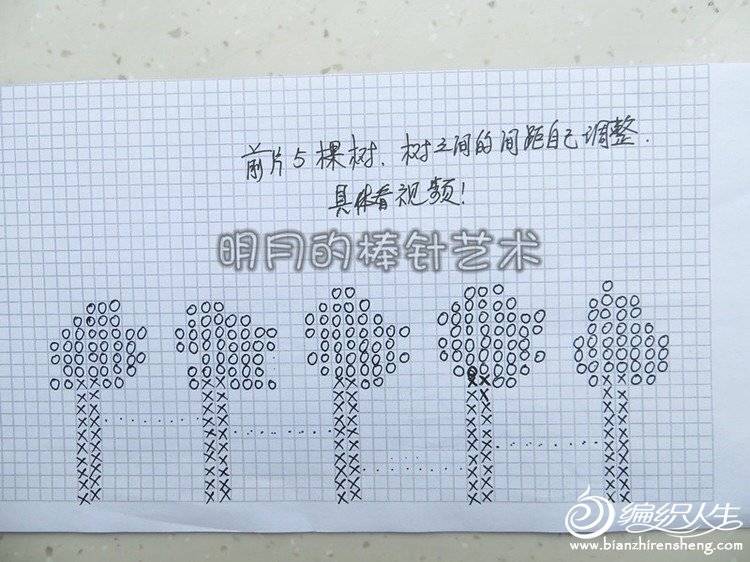 前片5棵树.树之间的间距自己调整.
具体看视频!
明月的棒针艺术
编织人生
www.bianzhirensheng.com